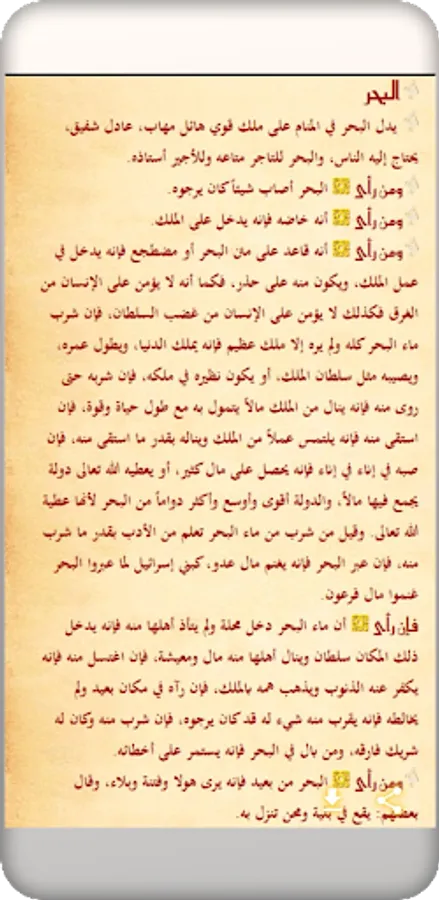 البحر
يدل البحر في المنام على ملك قوي هائل مهاب، عادل شفيق،
يحتاج إليه الناس، والبحر للتاجر متاعه وللأجير أستاذه.
ومن رأى البحر أصاب شيئاً كان يرجوه.
ومن رأى أنه خاضه فإنه يدخل على الملك.
ومن رأى أنه قاعد على متن البحر أو مضطجع فإنه يدخل في
عمل الملك، ويكون منه على حذر، فكما أنه لا يؤمن على الإنسان من
الغرق فكذلك لا يؤمن على الإنسان من غضب السلطان، فإن شرب
ماء البحر كله ولم يره إلا ملك عظيم فإنه يملك الدنيا، ويطول عمره،
ويصيبه مثل سلطان الملك، أو يكون نظيره في ملكه، فإن شربه حتى
روى منه فإنه ينال من الملك مالاً يتمول به مع طول حياة وقوة، فإن
استقى منه فإنه يلتمس عملاً من الملك ويناله بقدر ما استقى منه، فإن
صبه في إناء في إناء فإنه يحصل على مال كثير، أو يعطيه الله تعالى دولة
يجمع فيها مالاً، والدولة أقوى وأوسع وأكثر دواماً من البحر لأنها عطية
الله تعالى. وقيل من شرب من ماء البحر تعلم من الأدب بقدر ما شرب
منه، فإن عبر البحر فإنه يغنم مال عدو، كبني إسرائيل لما عبروا البحر
غنموا مال فرعون.
فإن رأى أن ماء البحر دخل محلة ولم يتأذ أهلها منه فإنه يدخل
ذلك المكان سلطان وينال أهلها منه مال ومعيشة، فإن اغتسل منه فإنه
يكفر عنه الذنوب ويذهب همه بالملك، فإن رآه في مكان بعيد ولم
يخالطه فإنه يقرب منه شيء له قد كان يرجوه، فإن شرب منه وكان له
شريك فارقه، ومن بال في البحر فإنه يستمر على أخطائه.
ومن رأى البحر من بعيد فإنه يرى هولا وفتنة وبلاء، وقال
بعضهم: يقع في بلية ومحن تنزل به.